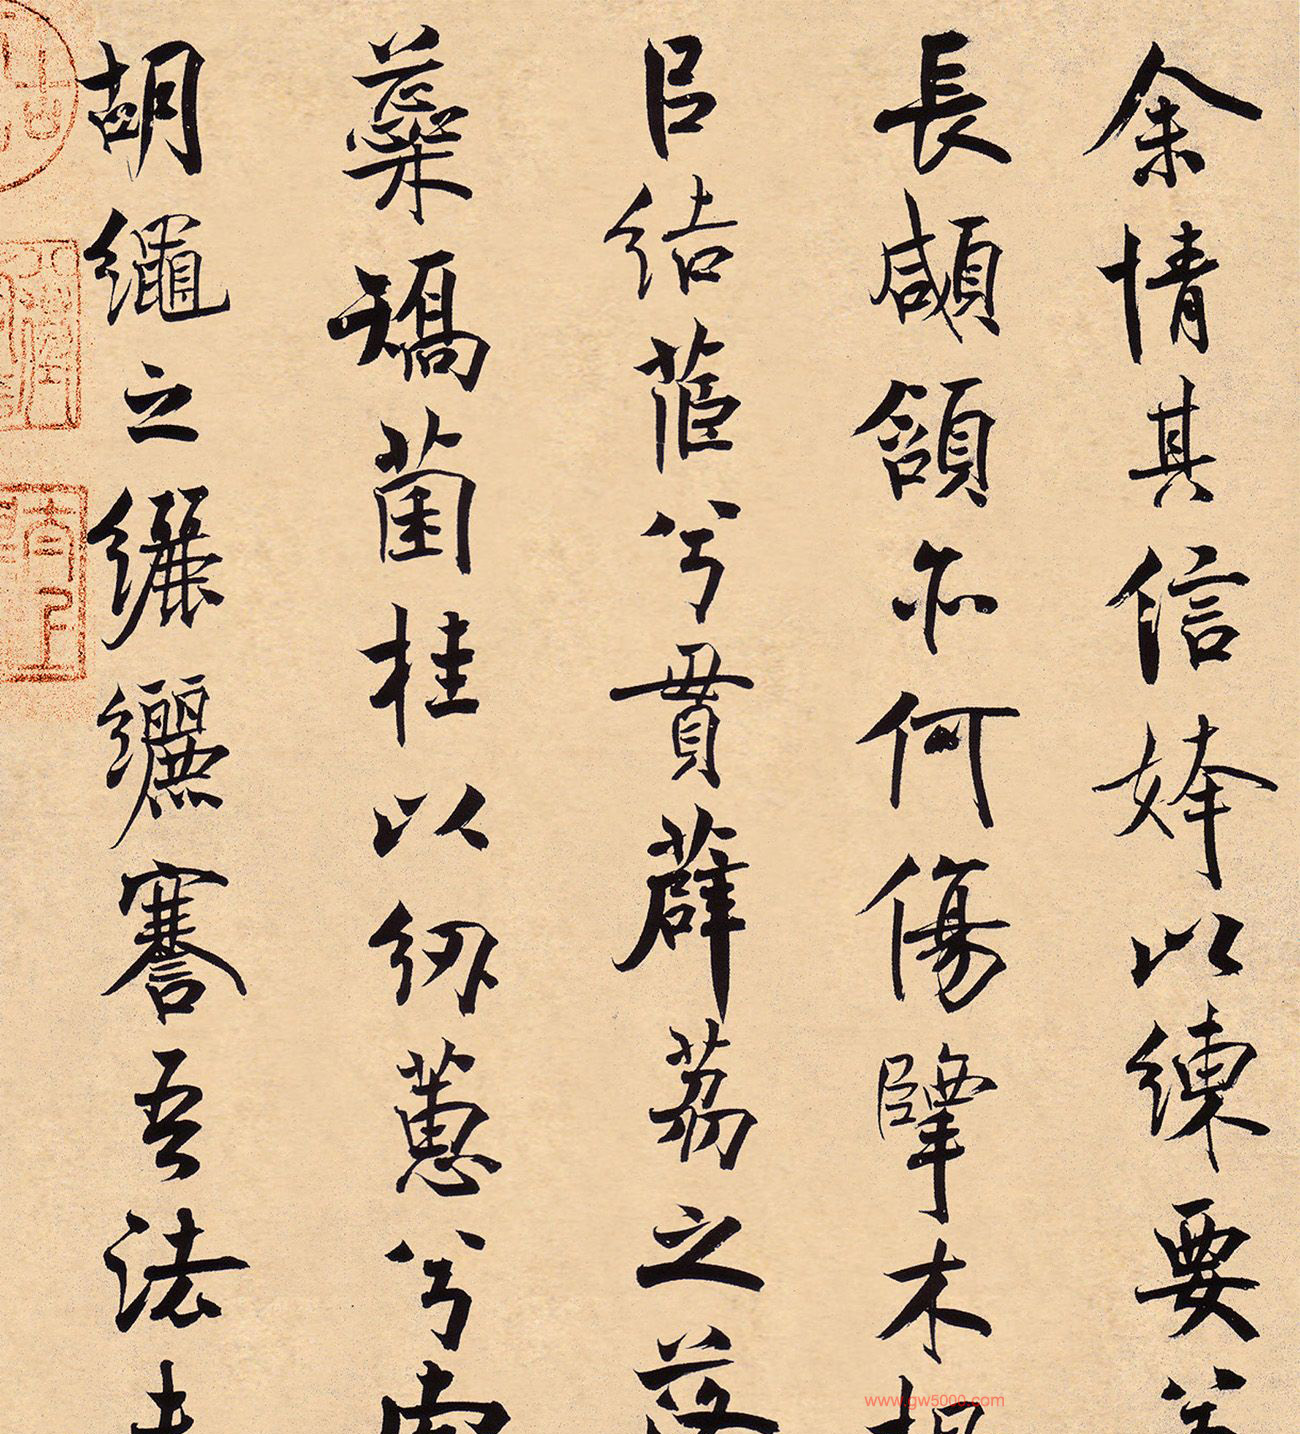 余情其信姱以練要兮
長顑頷亦何傷擥木根
㠯結茝兮貫薜荔之落
蘂矯菌桂以紉蕙兮索
胡繩之纚纚謇吾法夫
www.gw5000.com